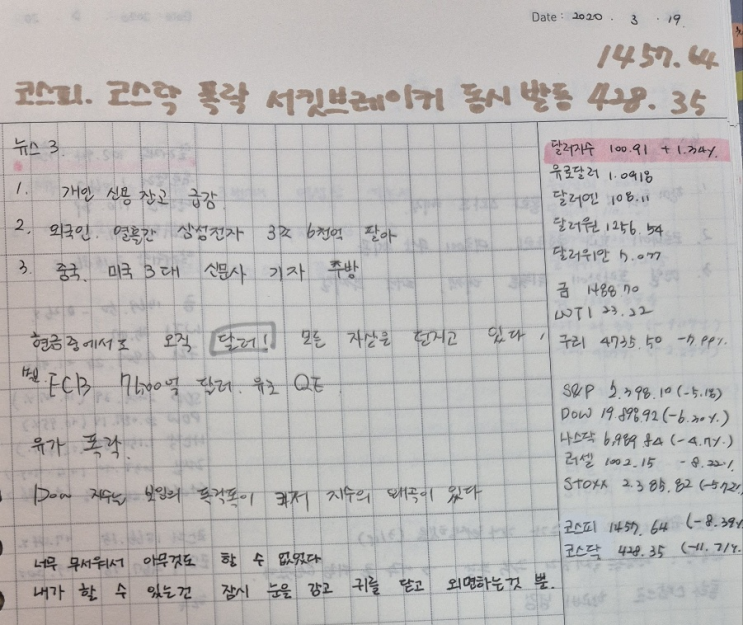 Date: 2020 . 3 . 19
1457.64
코스피. 코스닥 폭락 서킷브레이커 동시 발동 428.35
뉴스 3.
1. 개인 신용 잔고 급감.
2. 외국인. 열흘간 삼성전자 3조 6천억 팔아
3. 중국, 미국 3대 신문사 기자 추방
현금중에서도 오직 달러! 모든 자산은 던지고 있다,
ECB 7500억 달러. 유로 QE.
유가 폭락.
Dow 지수는 보잉의 폭락폭이 커서 지수의 왜곡이 있다
너무 무서워서 아무것도 할 수 없었다
내가 할 수 있는건 잠시 눈을 감고 귀를 닫고 외면하는것 뿐.
달러지수 100.91 +1.34%
유로달러 1.0918
달러엔 108.11
달러원 1256.54
달러위안 7.077
금 1488.70
WTI 23.22
구리 4735.50
S&P 2.398.10 (-5.18)
DOW 19.898.92 (-6.30%)
나스닥 6,989.84 (-4.7%)
러셀 1002.15 -8.22%
STOXX 2.385.82 (-5.72%
코스피 1457.64 (-8.39%
코스닥 428.35 (-11.71%